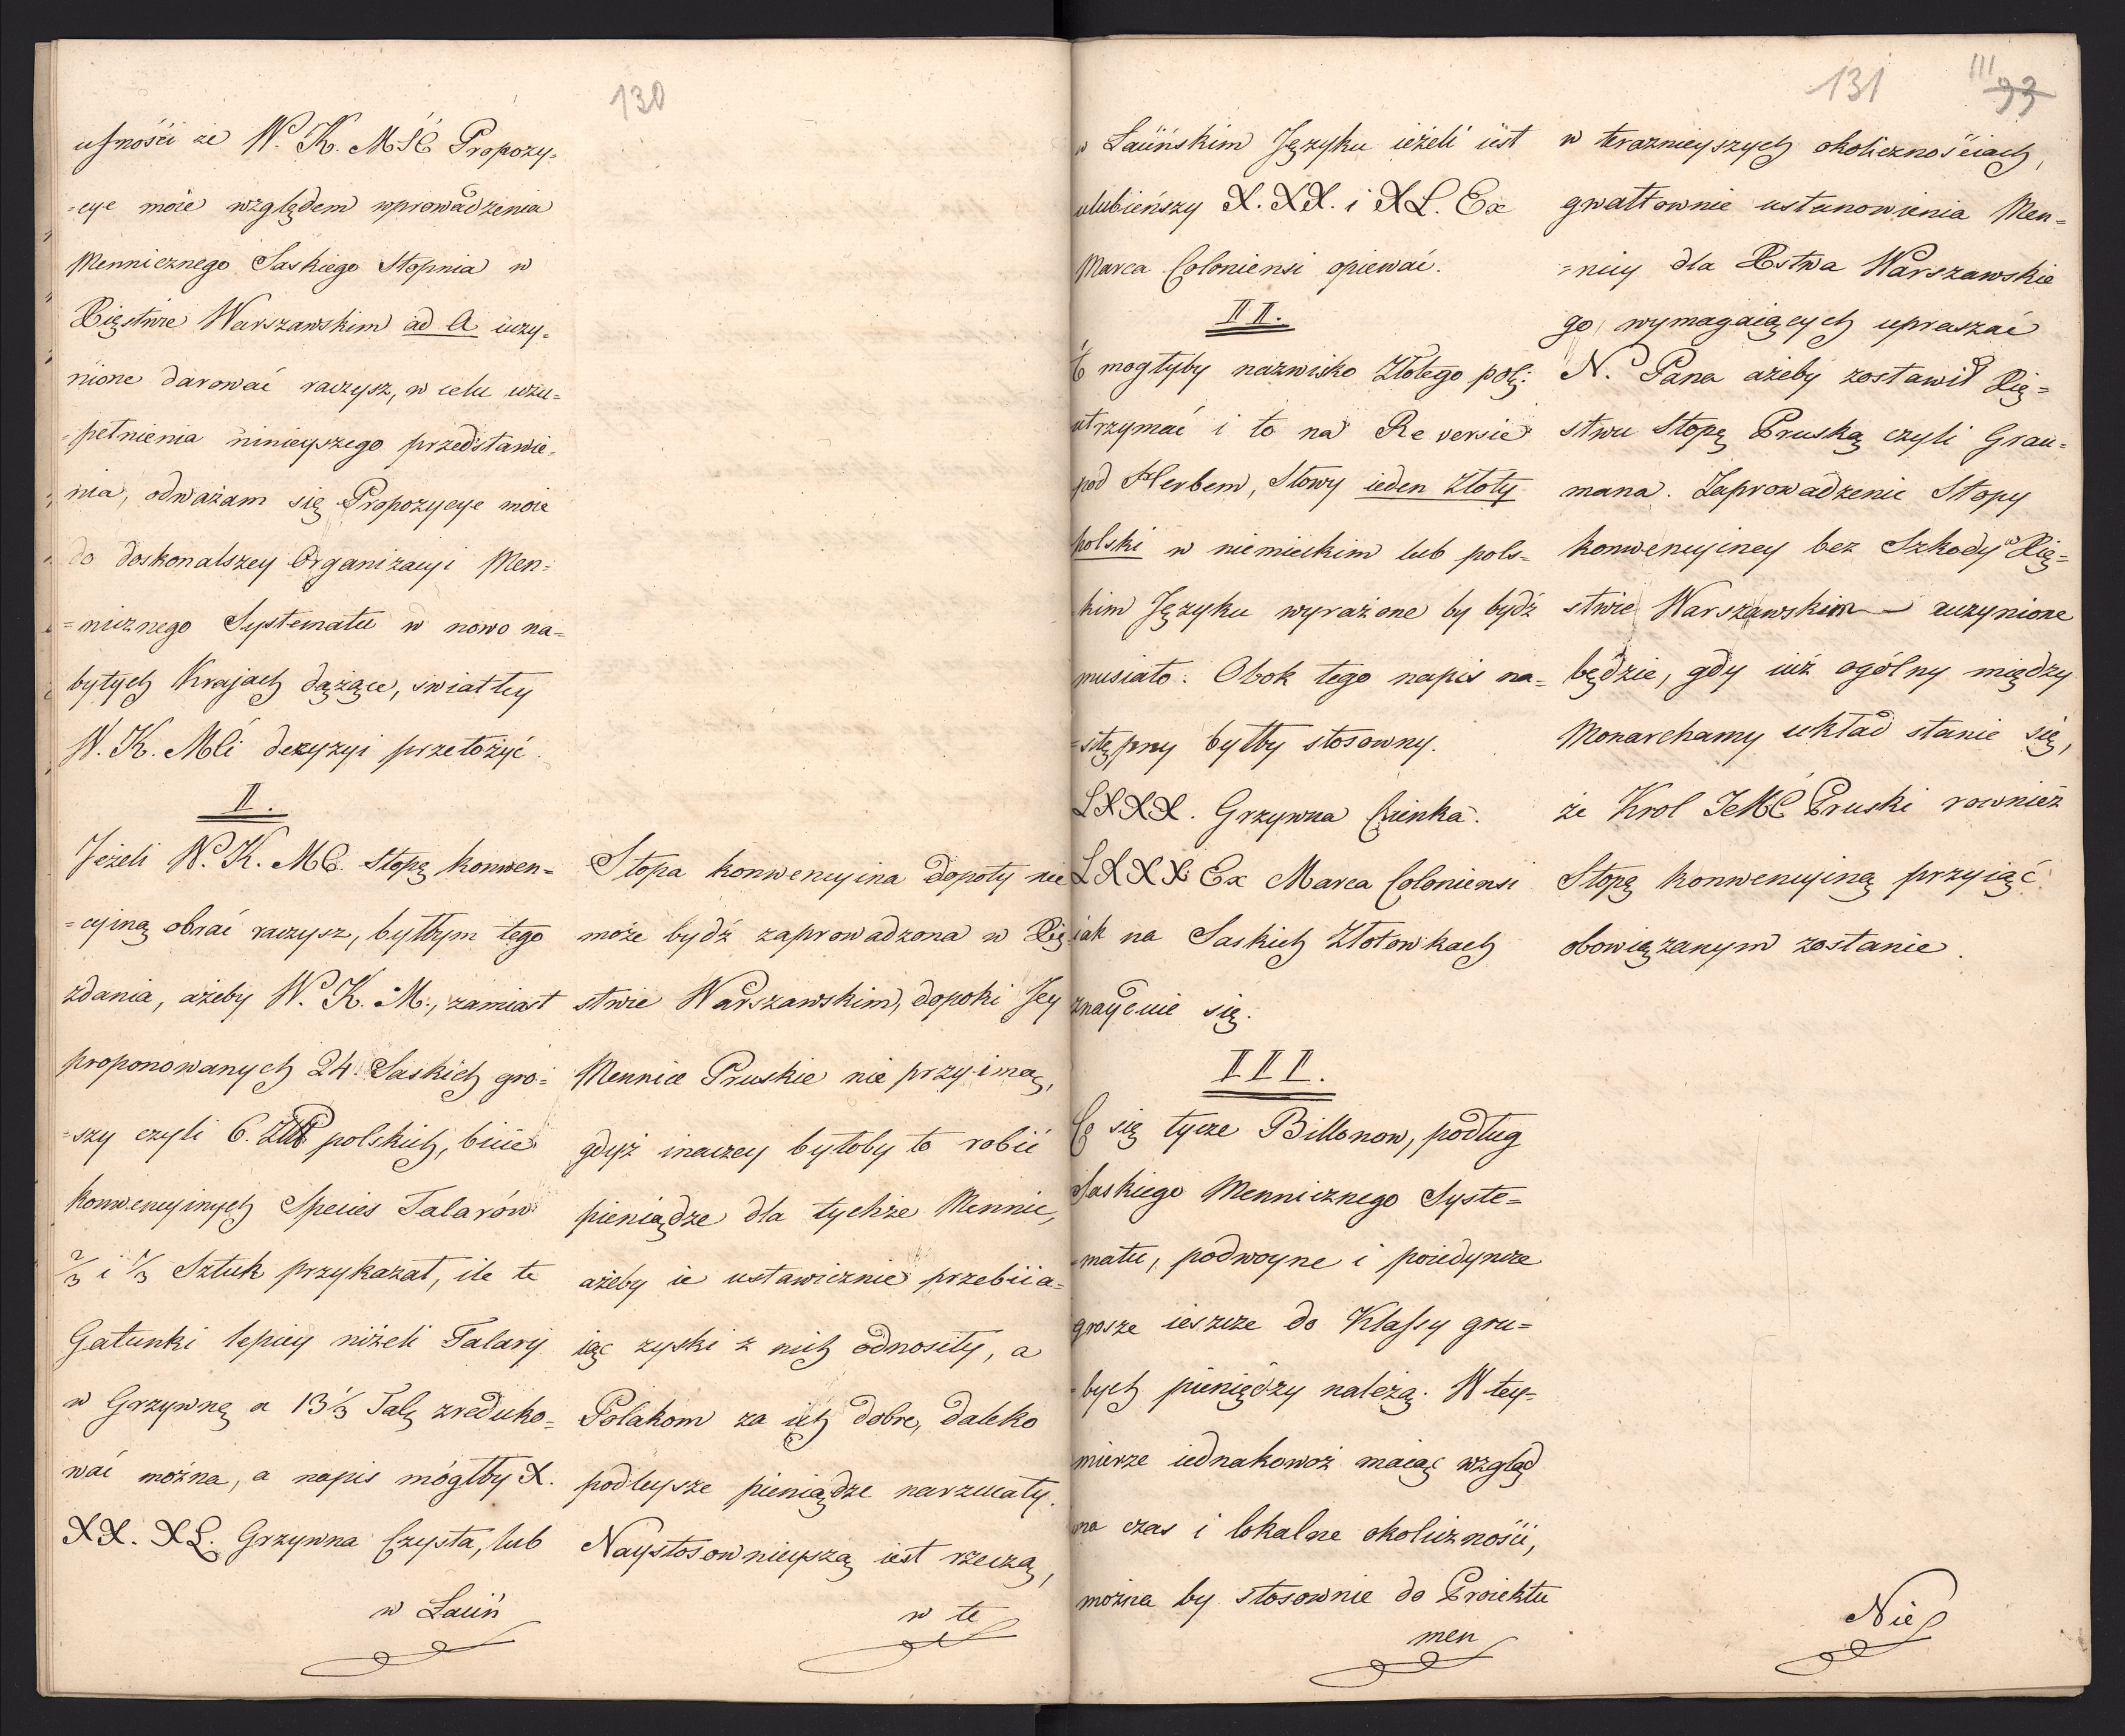 130
ufności że W. K. MŚĆ Propozy-
=cye moie względem wprowadzenia
Mennicznego Saskiego Stopnia w
Xięstwie Warszawskim ad A uczy-
nione darować raczysz, w celu uzu-
=pełnienia ninieyszego przedstawie-
nia, odważam się Propozycye moie
do doskonalszey Organizacyi Men-
=nicznego Systematu w nowo na-
bytych Krajach dążące, swiatłey
W. K. Mci decyzyi przełożyć.
II.
Jeżeli W. K. MC. Stopę konwen-
=cyiną obrać raczysz, byłbym tego
zdania, ażeby W. K. M., zamiast
proponowanych 24. Saskich gro-
=szy czyli 6. Złł polskich, bicie
konwencyinych Species Talarów
2/3 i 1/3 Sztuk przykazał, ile te
Gatunki lepiey niżeli Talary
w Grzywnę a 13 1/3 Talę zreduko-
wać można, a napis mógłby X.
XX. XL. Grzywna Czysta, lub
w Łaciń
Stopa konwencyina dopoty nie
może bydź zaprowadzona w Xię-
stwie Warszawskim, dopoki Jey
Mennice Pruskie nie przyimą,
gdyż inaczey byłoby to robić
pieniądze dla tychże Mennic,
ażeby ie ustawicznie przebiia-
iąc zyski z nich odnosiły, a
Polakom za ich dobre, daleko
podleysze pieniądze narzucały.
Naystosownieyszą iest rzeczą,
w te
131
III
93
w Łacińskim Języku ieżeli iest
ulubieńszy X. XX. i XL. Ex
Marca Coloniensi opiewać.
II.
mogłyby nazwisko Złotego pol:
utrzymać i to na Reversie
pod Herbem, Słowy ieden złoty
polski w niemieckim lub pols-
kim Języku wyrażone by bydź
musiało. Obok tego napis na-
=stępny byłby stosowny.
LXXX. Grzywna Cienka.
LXXX Ex Marca Coloniensi
iak na Saskich Złotowkach
znayduie się.
III.
Co się tycze Billonow, podług
Saskiego Mennicznego Syste-
=matu, podwoyne i poiedyncze
grosze ieszcze do Klassy gru-
=bych pieniędzy należą. W tey-
mierze iednakowoż maiąc wzgląd
na czas i lokalne okoliczności,
można by stosownie do Proiektu
men
w teraznieyszych okolicznościach,
gwałtownie ustanowienia Men-
=nicy dla Xstwa Warszawskie
go, wymagaiących upraszać
N. Pana ażeby zostawił Xię-
stwu Stopę Pruską czyli Grau-
mana. Zaprowadzenie Stopy
konwencyiney bez Szkody w Xię-
stwie Warszawskim — uczynione
będzie, gdy iuż ogólny między
Monarchamy układ stanie się,
że Krol JeMĆ Pruski rownież
Stopę konwencyiną przyiąć
obowiązanym zostanie.
Nie